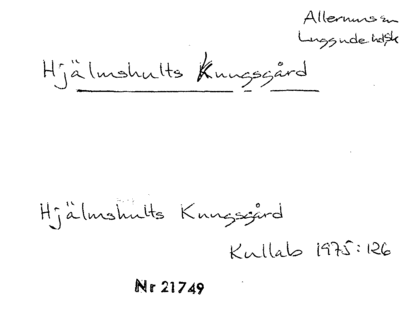 Allerums sn
Luggude hd, Sk
Hjälmshults Kungsgård
Hjälmshults Kungsgård
Kullab 1975:126
Nr 21749